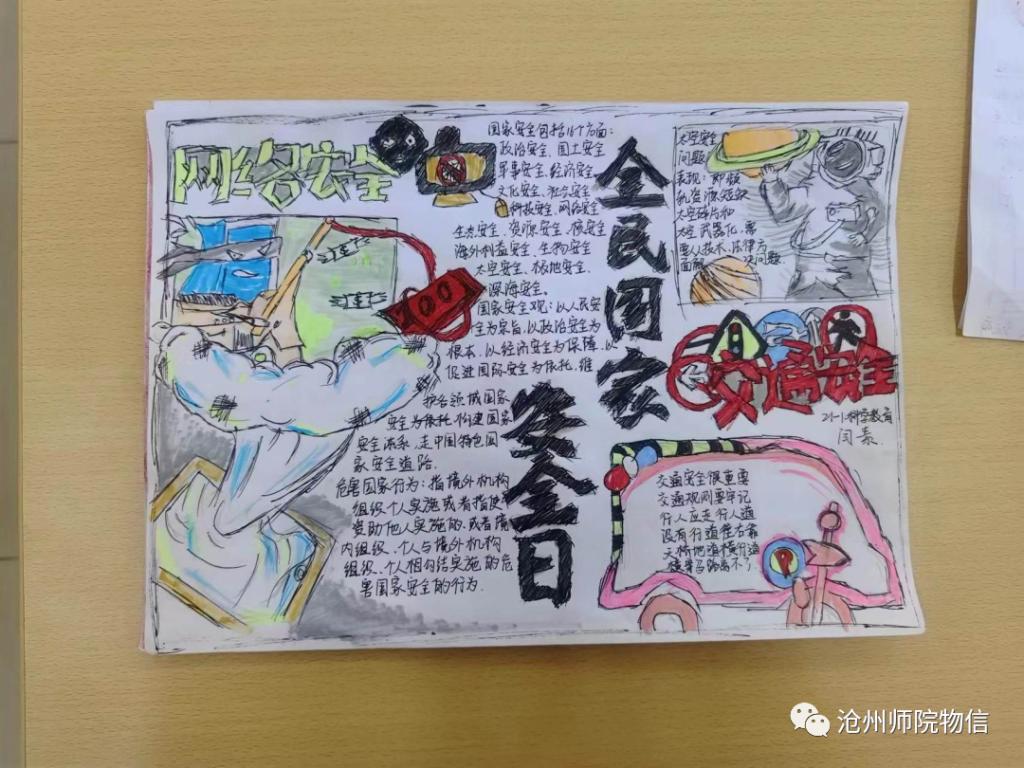 网络安全
国家安全包括16个方面：
政治安全、国土安全
军事安全、经济安全、
文化安全、社会安全
科技安全、网络安全
生态安全、资源安全、核安全
海外利益安全、生物安全
太空安全、极地安全、
深海安全。
国家安全观：以人民安
全为宗旨，以政治安全为
根本，以经济安全为保障，以
促进国际安全为依托，维
护各领域国家
安全为依托，构建国家
安全体系，走中国特色国
家安全道路。
危害国家行为：指境外机构
组织个人实施或者指使
资助他人实施的，或者境
内组织、个人与境外机构
组织、个人相勾结实施的危
害国家安全的行为.
全民国家
安全日
太空安全
问题
表现：即频
轨资源短缺
太空碎片和
太空武器化，需
要从技术、法律方
面解决问题
交通安全
21-1科学教育
闫素
交通安全很重要
交通规则要牢记
行人应走行人道
没有行道往右靠
天桥地道横行道
横穿马路离不了
沧州师院物信